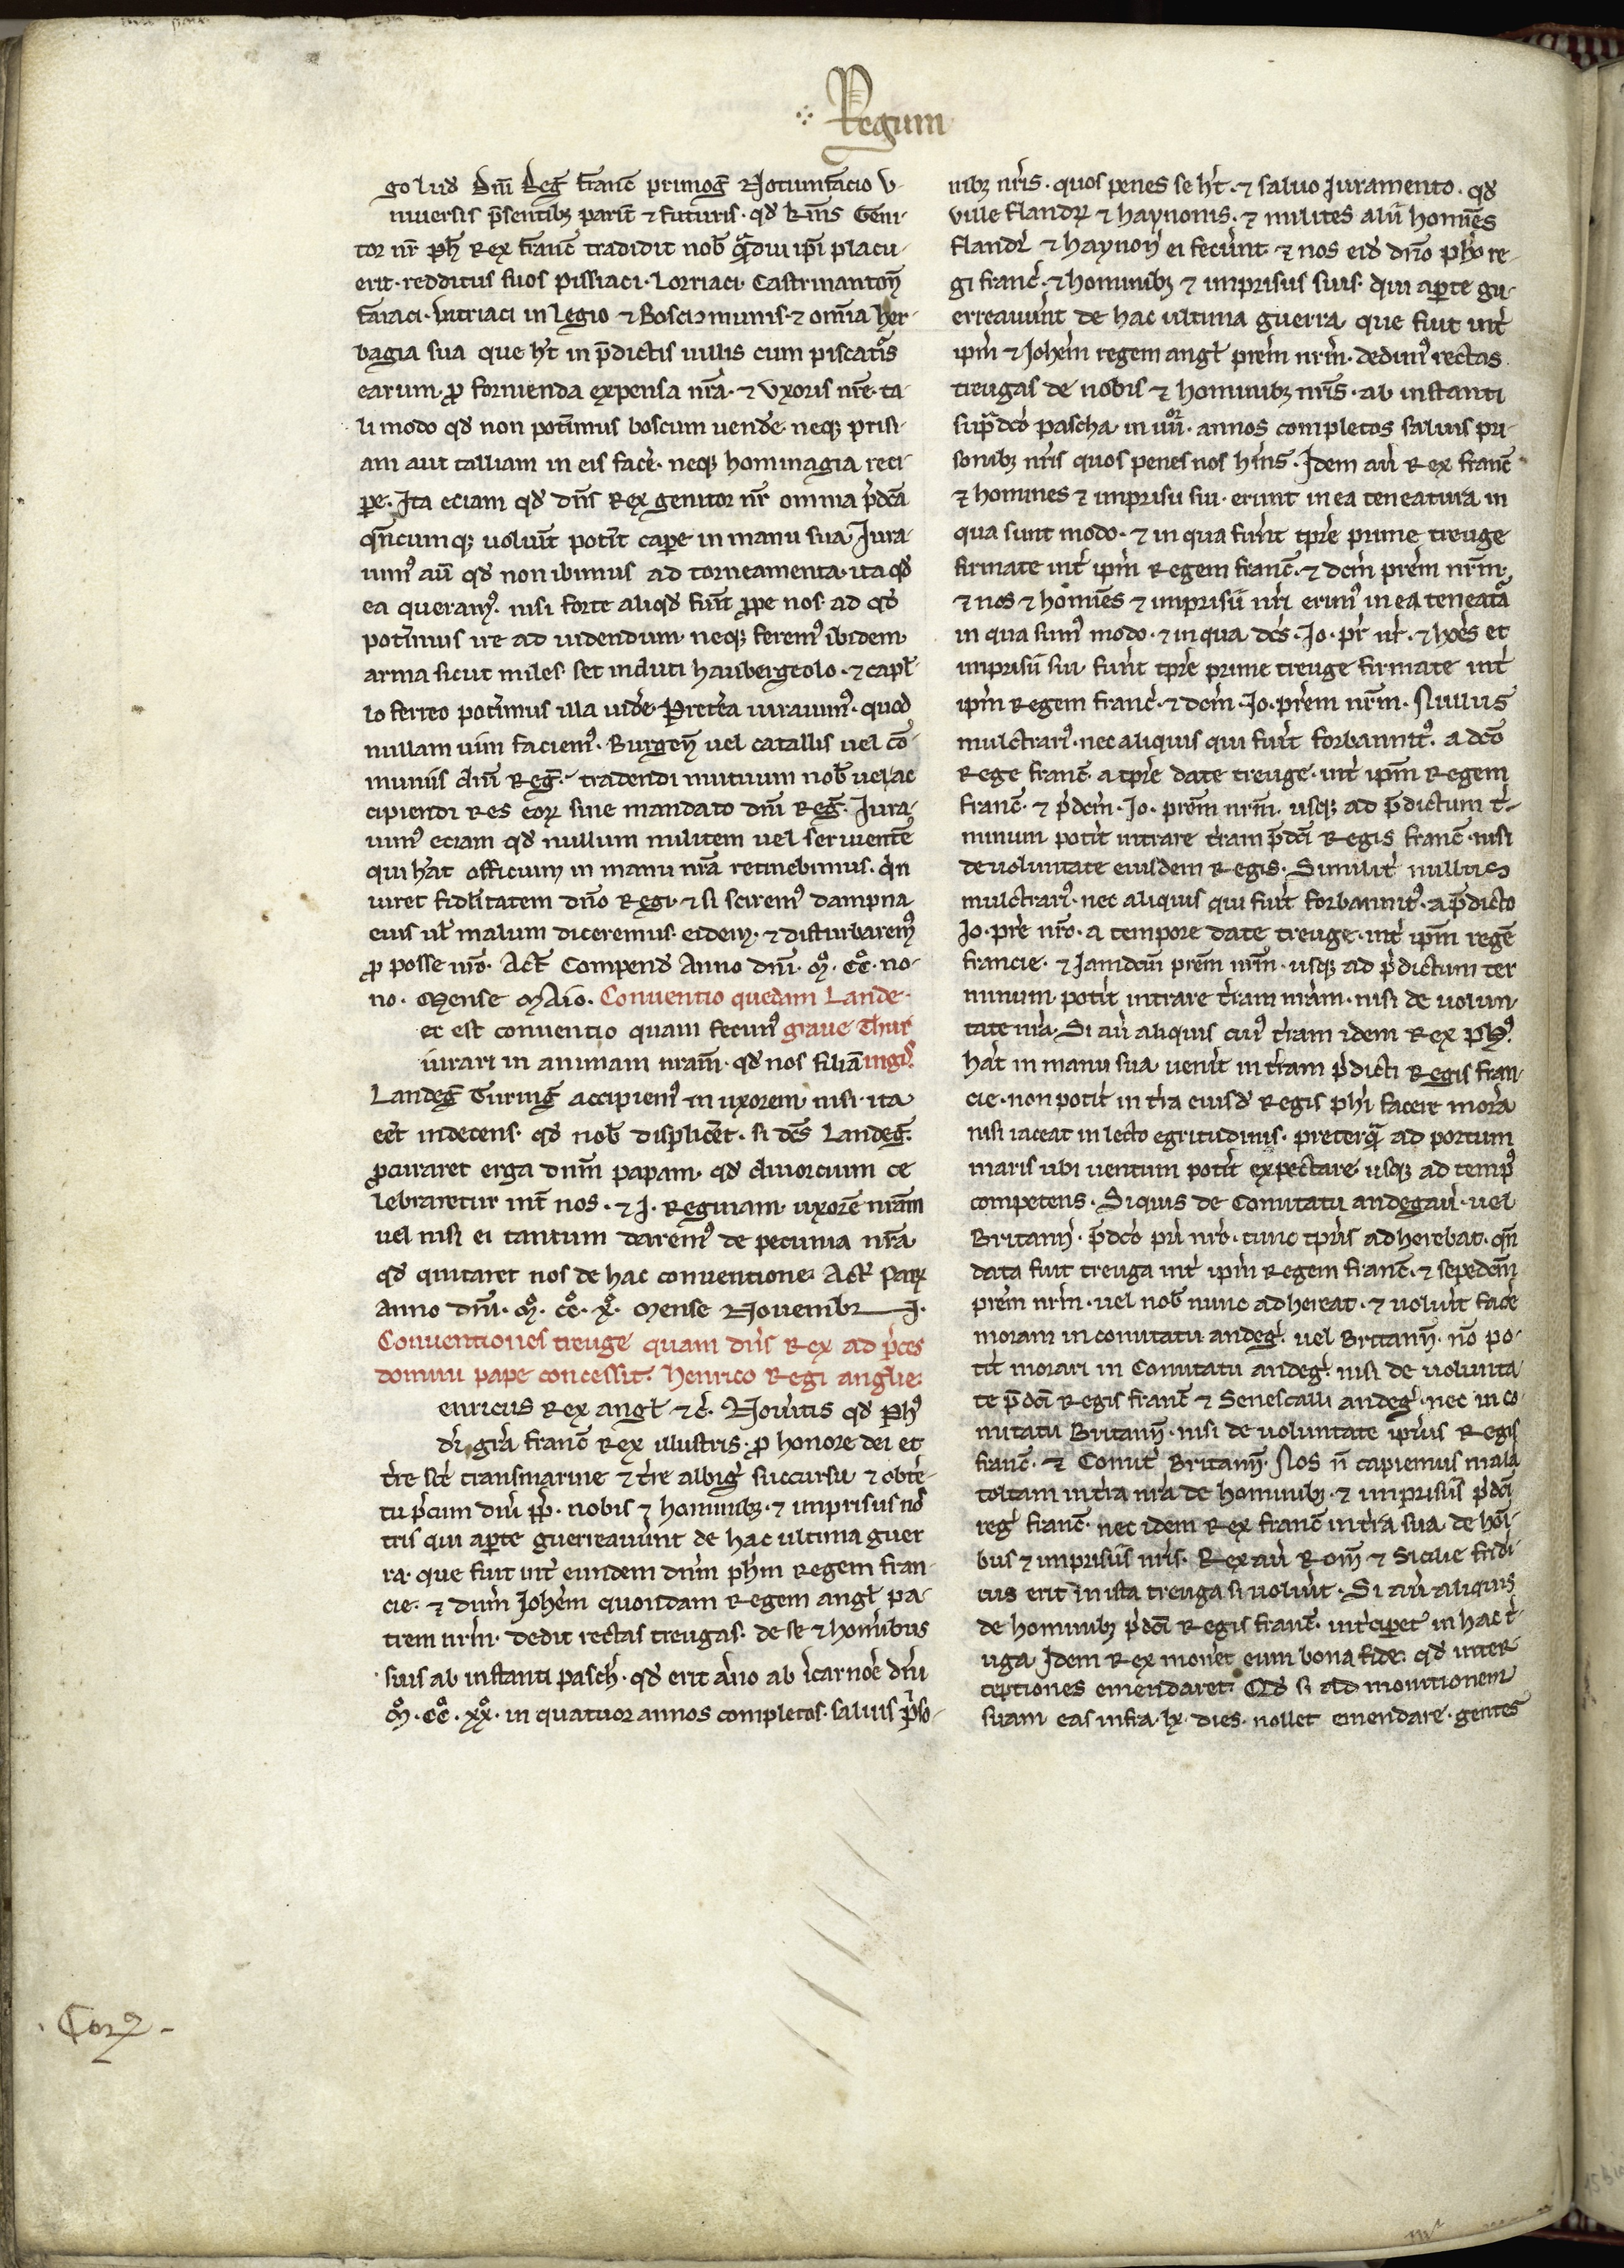 Regum
go lud᷒ dn̄i Reg̅ franc̅ primog̅ Notum facio v-
niuersis p̄sentibꝫ parit̅ ⁊ futuris· qd̓ km̄s Geni-
tor nr̄ ph̅ Rex franc̅ tradidit nob̅ qᵃ̅diu ip̄i placu-
erit· redditus suos pissiaci· Lorriaci· Castrinanton̅
faiaci· vitriaci in legio ⁊ Boscomunis· ⁊ om̄ia her-
bagia sua que hꝫ̅t in p̄dictis uillis cum piscat̅is
earum· ꝓ fornienda expensa nr̄a· ⁊ vxoris nr̄e· ta-
li modo qd̓ non pot̓imus boscum uende̓· neqꝫ prisi-
am aut talliam in eis fac̓e· neqꝫ hominagia reci-
ꝑe· Ita eciam qd̓ dn̄s Rex genitor nr̄ omnia p̓dc̄a
qn̄cumqꝫ uolu̓it pot̓it caꝑe in manu sua Iura-
uimꝰ au̅t qd̓ non ibimus ad torneamenta· ita qd̓
ea queramꝰ· nisi forte aliqd̓ fiu̅t ꝓpe nos· ad qd̓
pot̓imus ire ad uidendum· neqꝫ feremꝰ ibidem
arma sicut miles· set induti haubergeolo· ⁊ capl̅-
lo ferreo pot̓imus illa uid̓e· Pret̓ea iurauimꝰ· quod
nullam uim faciemꝰ· Burgen̅ uel catallis uel co̅-
muniis dn̄i Reg̅· tradendi mutuum nob̅ uel ac
cipiendi res eoꝝ sine mandato dn̄i Reg̅· Iura-
uimꝰ eciam qd̓ nullum militem uel seruiente̅
qui h̅at officium in manu nr̄a retinebimus· qⁱn
iuret fidl̅itatem dn̄o Regi· ⁊ si sciremꝰ dampna
eius ul̅ malum diceremus eidem· ⁊ disturbaremꝰ
ꝓ posse nr̄o· Act̅ Compend̓ Anno dn̄i· mͦ· ccͦ· no-
no· mense maio· Conuentio quedam Lande-
ec est conuentio quam fecimꝰ graue Thur
iurari in animam nr̄am· qd̓ nos filia̅ ingꝭ
Landeg̅ Turing̅ accipiemꝰ in uxorem nisi ita
e̅et indecens· qd̓ nob̅ displice̅t· si dc̄s Landeg̅
ꝓcuraret erga dn̄m papam· qd̓ diuorcium ce
lebraretur int̅ nos· ⁊ I· Reginam· uxore̅ nr̄am
uel nisi ei tantum daremꝰ de pecunia nr̄a
qd̓ quitaret nos de hac conuentione· Act̅ Parꝭ
Anno dn̄i· mͦ· ccͦ· xͦ· mense Nouembr̅ I·
Conuentiones treuge quam dn̄s Rex ad p̓ces
domini pape concessit· Henrico Regi anglie·
enricus Rex angl̅ ⁊c̓· Nou̓itis qd̓ Phꝰ
dī gr̄a franc̅ Rex illustris· ꝓ honore dei et
t̓re sc̄e transmarine ⁊ t̓re albig̓ succursu ⁊ obte̅-
tu p̓cum dn̄i pp̅· nobis ⁊ hominibꝫ· ⁊ imprisiis nos
tris qui aꝑte guerreauu̓nt de hac ultima guer
ra· que fuit int̓ eundem dn̄m ph̅m Regem fran-
cie· ⁊ dn̄m Joh̓em quondam Regem angl̅ pa-
trem nr̄m· dedit rectas treugas· de se ⁊ hominibus
suis ab instanti pasch̓· qd̓ erit an̄o ab i̅carnoe̅ dn̄i
mͦ· ccͦ· xxͦ· in quatuor annos completos· saluis pⁱso-
nibꝫ nr̄is· quos penes se hꝫ̅t· ⁊ saluo Iuramento· qd̓
ville flandꝝ ⁊ haynonis· ⁊ milites alii homi̅es
flandr̓ ⁊ haynon̓ ei fecu̓nt· ⁊ nos eid̓ dn̄o ph̅o re-
gi franc̓· ⁊ hominibꝫ ⁊ imprisiis suis· qui aꝑte gu-
erreauu̓nt de hac ultima guerra que fuit int̓
ip̄m ⁊ Joh̓em regem angl̅ pr̄em nr̄m· dedimꝰ rectas
treugas de nobis ⁊ hominibꝫ nr̄is· ab instanti
sup̄ᵃdc̄o pascha· in iiiiᵒʳ· annos completos saluis pri-
sonibꝫ nr̄is quos penes nos hm̄s· Idem au̅ Rex franc̅
⁊ homines ⁊ imprisii sui· erunt in ea teneatura in
qua sunt modo· ⁊ in qua fue̓nt tp̄re prime treuge
firmate int̓ ip̄m Regem franc̅· ⁊ dc̄m pr̄em nr̄m·
⁊ nos ⁊ homi̅es ⁊ imprisii nr̄i erimꝰ in ea teneat̅a
in qua sumꝰ modo· ⁊ in qua dc̄s· Jo· pr̄ nr̄· ⁊ ho̅es et
imprisii sui fu̓nt tp̄re prime treuge firmate int̓
ip̄m Regem franc̓· ⁊ dc̄m· Jo· pr̄em nr̄m· Nullus
mulctrariꝰ· nec aliquis qui fu̓it forbannitꝰ· a dc̄o
Rege franc̅· a tp̄re date treuge· int̓ ip̄m Regem
franc̅· ⁊ p̓dc̄m· Jo· pr̄em nr̄m· usqꝫ ad p̄dictum t̓-
minum pot̓it intrare t̓ram p̄dc̄i Regis franc̅ nisi
de uoluntate eiusdem Regis· Similit̓ nullus
mulctrariꝰ· nec aliquis qui fu̓it forbannitꝰ· a p̄dicto
Jo· pr̄e nr̄o· a tempore date treuge· int̓ ip̄m rege̅
francie· ⁊ Iamdc̄m pr̄em nr̄m· usqꝫ ad p̓dictum ter
minum· pot̓it intrare t̓ram nr̄am· nisi de uolun-
tate nr̄a· Si au̅ aliquis cuiꝰ t̓ram idem Rex Phꝰ·
h̅at in manu sua uen̓it in t̓ram p̓dicti Regis fran-
cie· non pot̓it in t̓ra eiusd̓ Regis ph̅i facere mora̅
nisi iaceat in lecto egritudinis· preterqᵃ̅ ad portum
maris ubi uentum pot̓it expectare usqꝫ ad tempꝰ
competens· Siquis de Comitatu andegau̓· uel
Britann̓· p̄dc̄o pr̄i nr̄o· tunc tp̄ris adherebat· qn̄
data fuit treuga int̓ ip̄m Regem franc̅· ⁊ sepedc̄m
pr̄em nr̄m· uel nob̅ nunc adhereat· ⁊ uolu̓it face̓
moram in comitatu andeg̓· uel Britann̅· no̅ po-
t̓it morari in Comitatu andeg̓· nisi de uolunta
te p̄dc̄i Regis franc̅ ⁊ Senescalli andeg̓· nec in co-
mitatu Britann̅· nisi de uoluntate ip̄ius Regis
franc̅· ⁊ Comit̓ Britann̅· Nos n̅ capiemus mala
toltam in t̓ra nr̄a de hominibꝫ· ⁊ imprisiis p̓dc̄i
reg̓ franc̅· nec idem Rex franc̅ in t̓ra sua de ho̅i-
bus ⁊ imprisiis nr̄is· Rex au̅ Rom̅ ⁊ Sicilie frid̓i-
cus erit in ista treuga si uolu̓it· Si au̅ aliquis
de hominibꝫ p̓dc̄i Regis franc̅· int̓ciꝑet in hac t̓-
uga Idem Rex mone̓t eum bona fide· qd̓ inter-
ceptiones emendaret· Qd̓ si ad monitionem
suam eas infra· lx· dies· nollet emendare· gentes
· Corꝝ ·